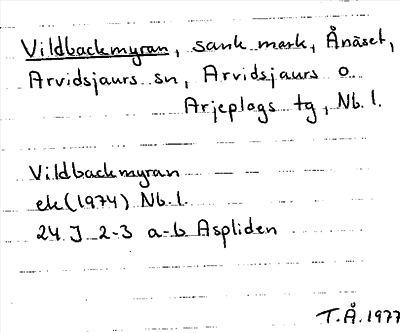 Vildbackmyran, sank mark, Ånäset,
Arvidsjaurs sn, Arvidsjaurs o
Arjeplogs tg, Nb. l.
Vildbackmyran
ek (1974) Nb. l.
24 J 2-3 a-b Aspliden
T.Å. 1977